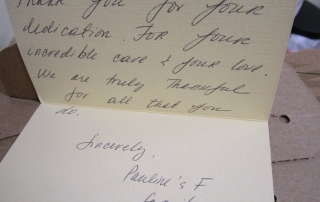 Thank you for your
dedication. For your
incredible care & your love.
We are truly Thankful
for all that you
do.
Sincerely,
Pauline's F